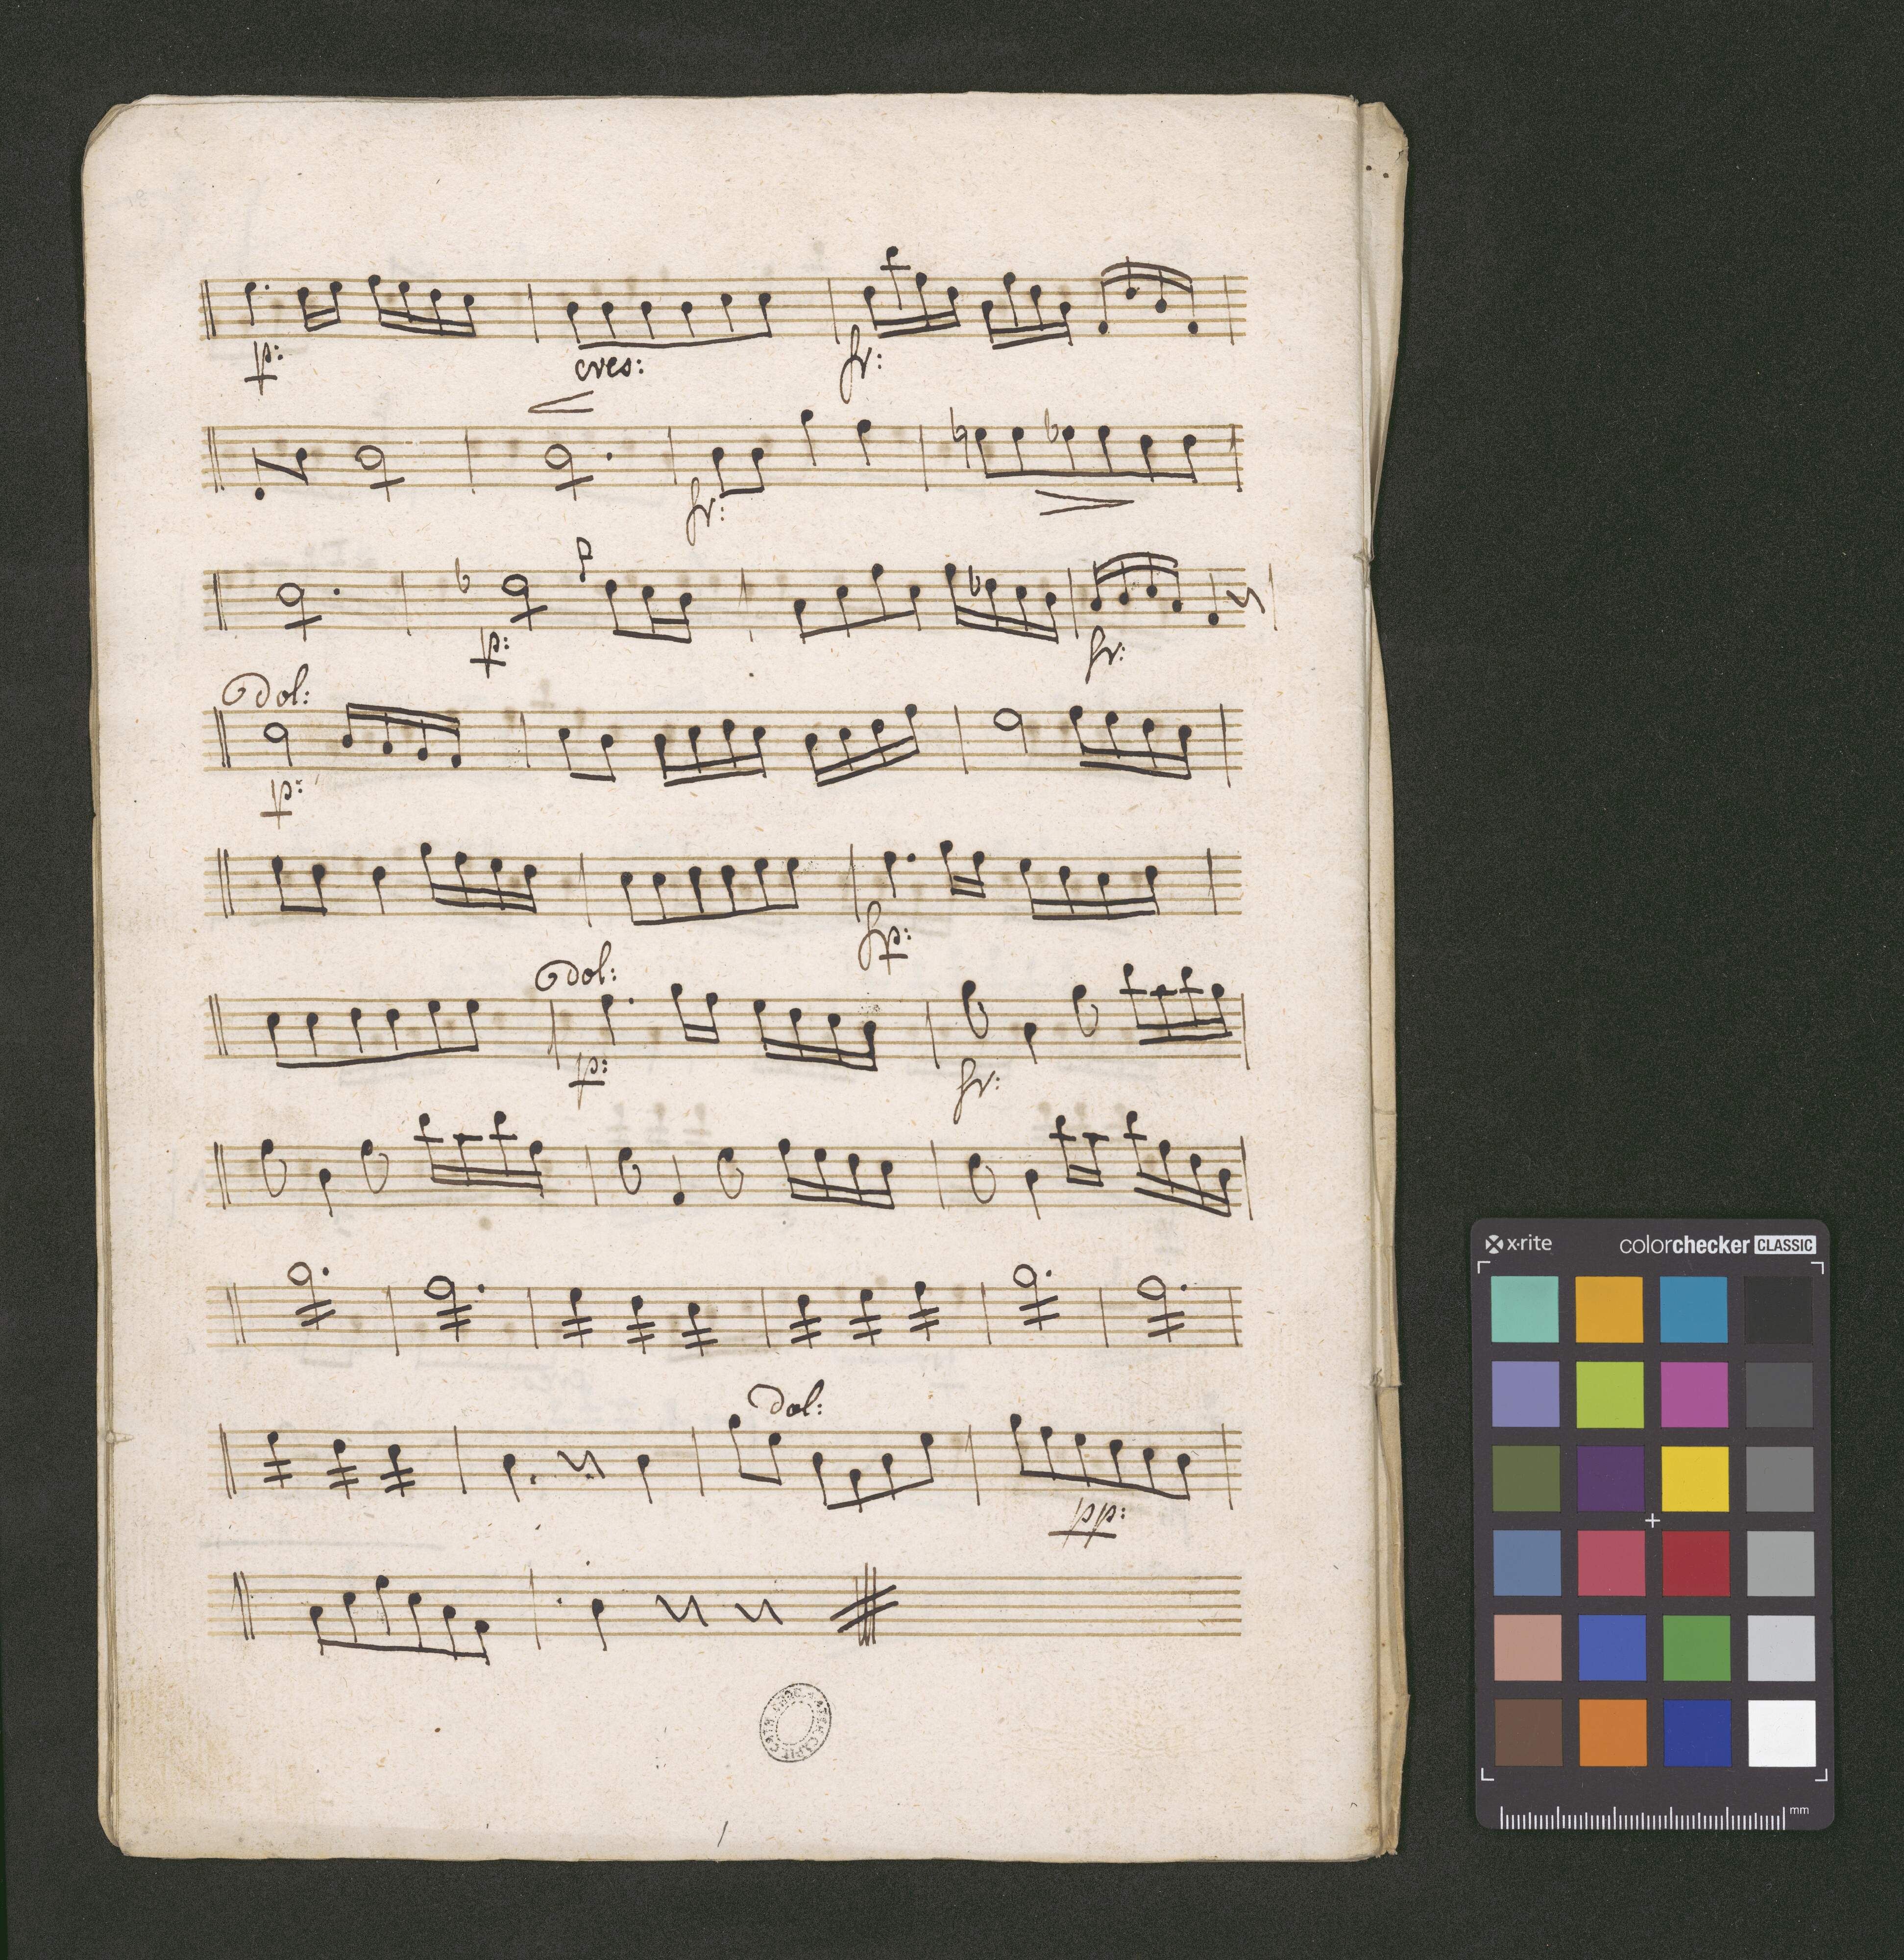 p:
cres:
fr:
fr:
p
p:
fr:
dol:
p:
fp:
dol:
p:
fr:
x·rite
colorchecker CLASSIC
dol:
pp:
mm